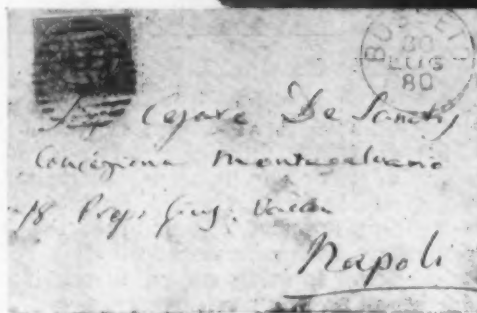 BUSSETO
30
LUG
80
Sig Cesare De Sanctis
Concezione Montecalvario
18 
Napoli